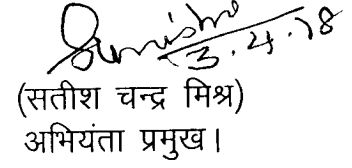 3.4.18
(सतीश चन्द्र मिश्र)
अभियंता प्रमुख।